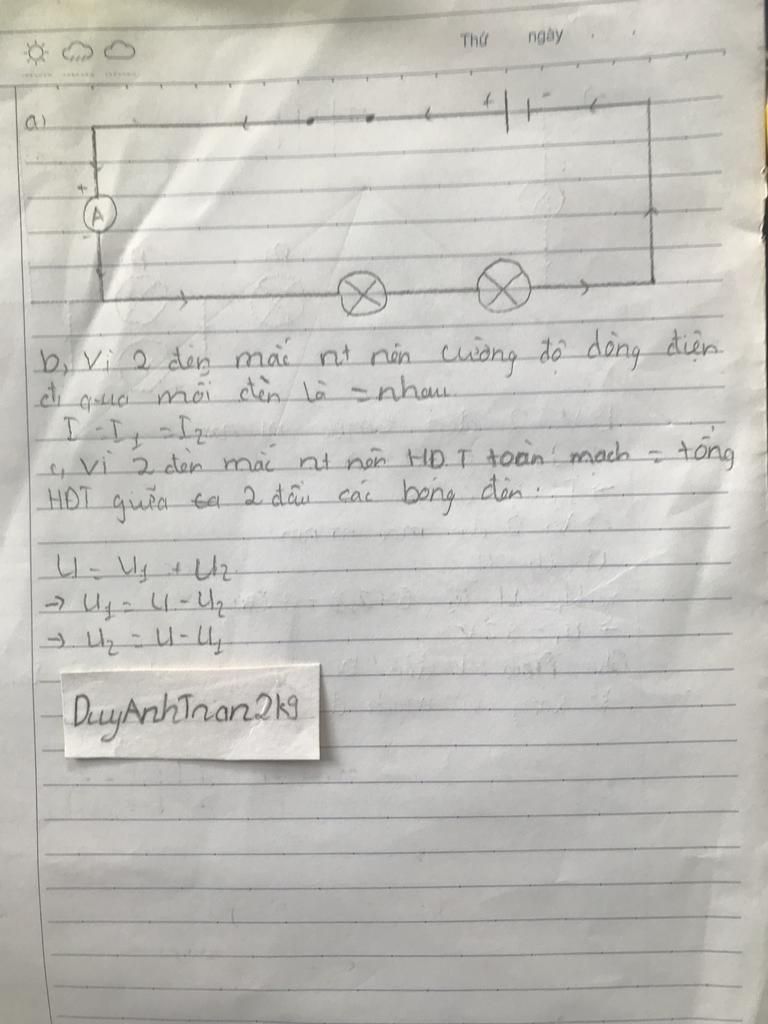 Thứ ngày . .
a)
+ -
+
A
-
b, Vì 2 đèn mắc nt nên cường độ dòng điện
đi qua mỗi đèn là = nhau
I = I₁ = I₂
c, Vì 2 đèn mắc nt nên HĐT toàn mạch = tổng
HĐT giữa 2 đầu các bóng đèn.
U = U₁ + U₂
→ U₁ = U - U₂
→ U₂ = U - U₁
DuyAnhTran2k9